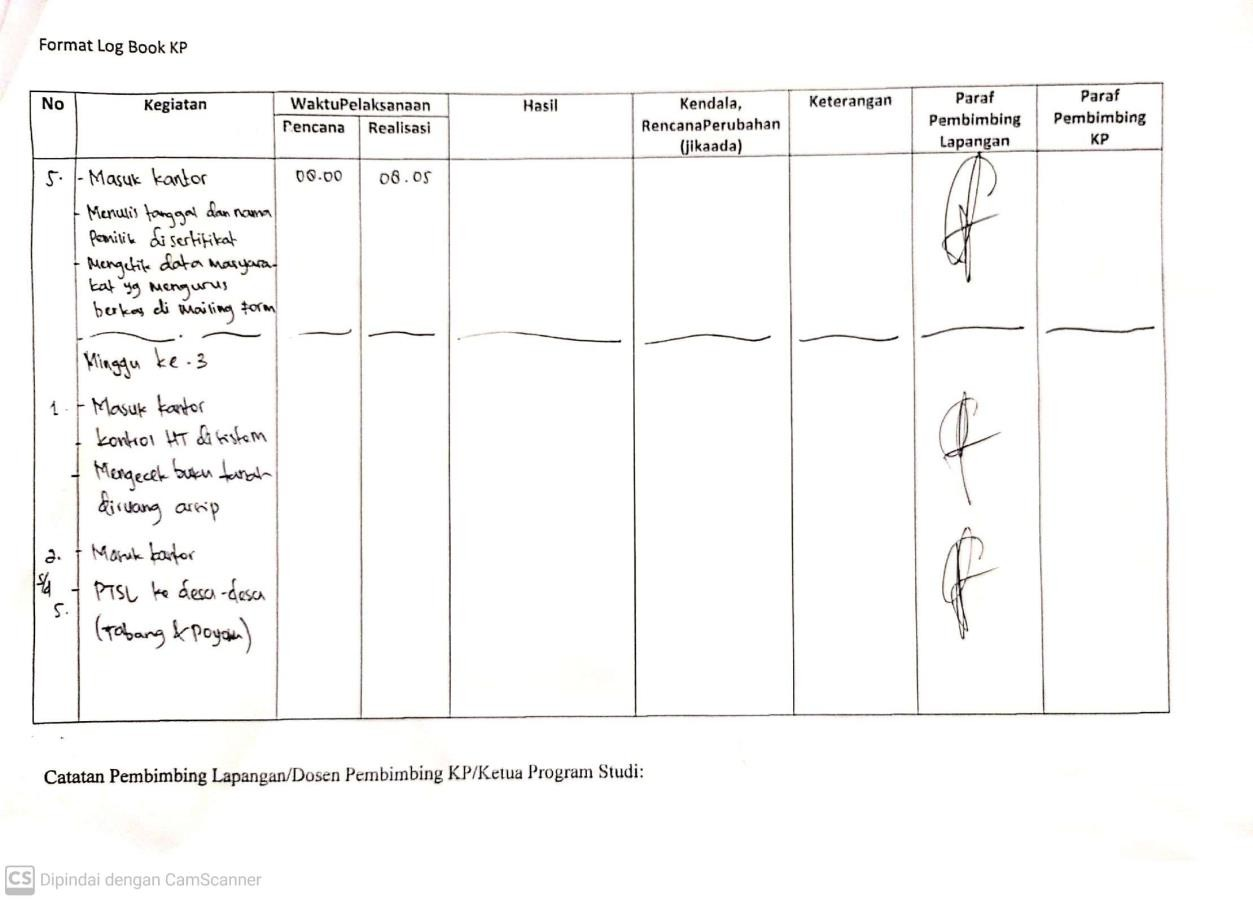 Format Log Book KP
No Kegiatan WaktuPelaksanaan Hasil Kendala, RencanaPerubahan (jikaada) Keterangan Paraf Pembimbing Lapangan Paraf Pembimbing KP
Rencana Realisasi
5. - Masuk kantor 08.00 08.05
- Menulis tanggal dan nama
Pemilik di sertifikat
- Mengetik data masyara-
kat yg mengurus
berkas di mailing form
Minggu ke-3
1. - Masuk kantor
- kontrol HT di sistem
- Mengecek buku tanah
diruang arsip
2. - Masuk kantor
s/d - PTSL ke desa-desa
5. (Tabang &
Catatan Pembimbing Lapangan/Dosen Pembimbing KP/Ketua Program Studi:
CS Dipindai dengan CamScanner